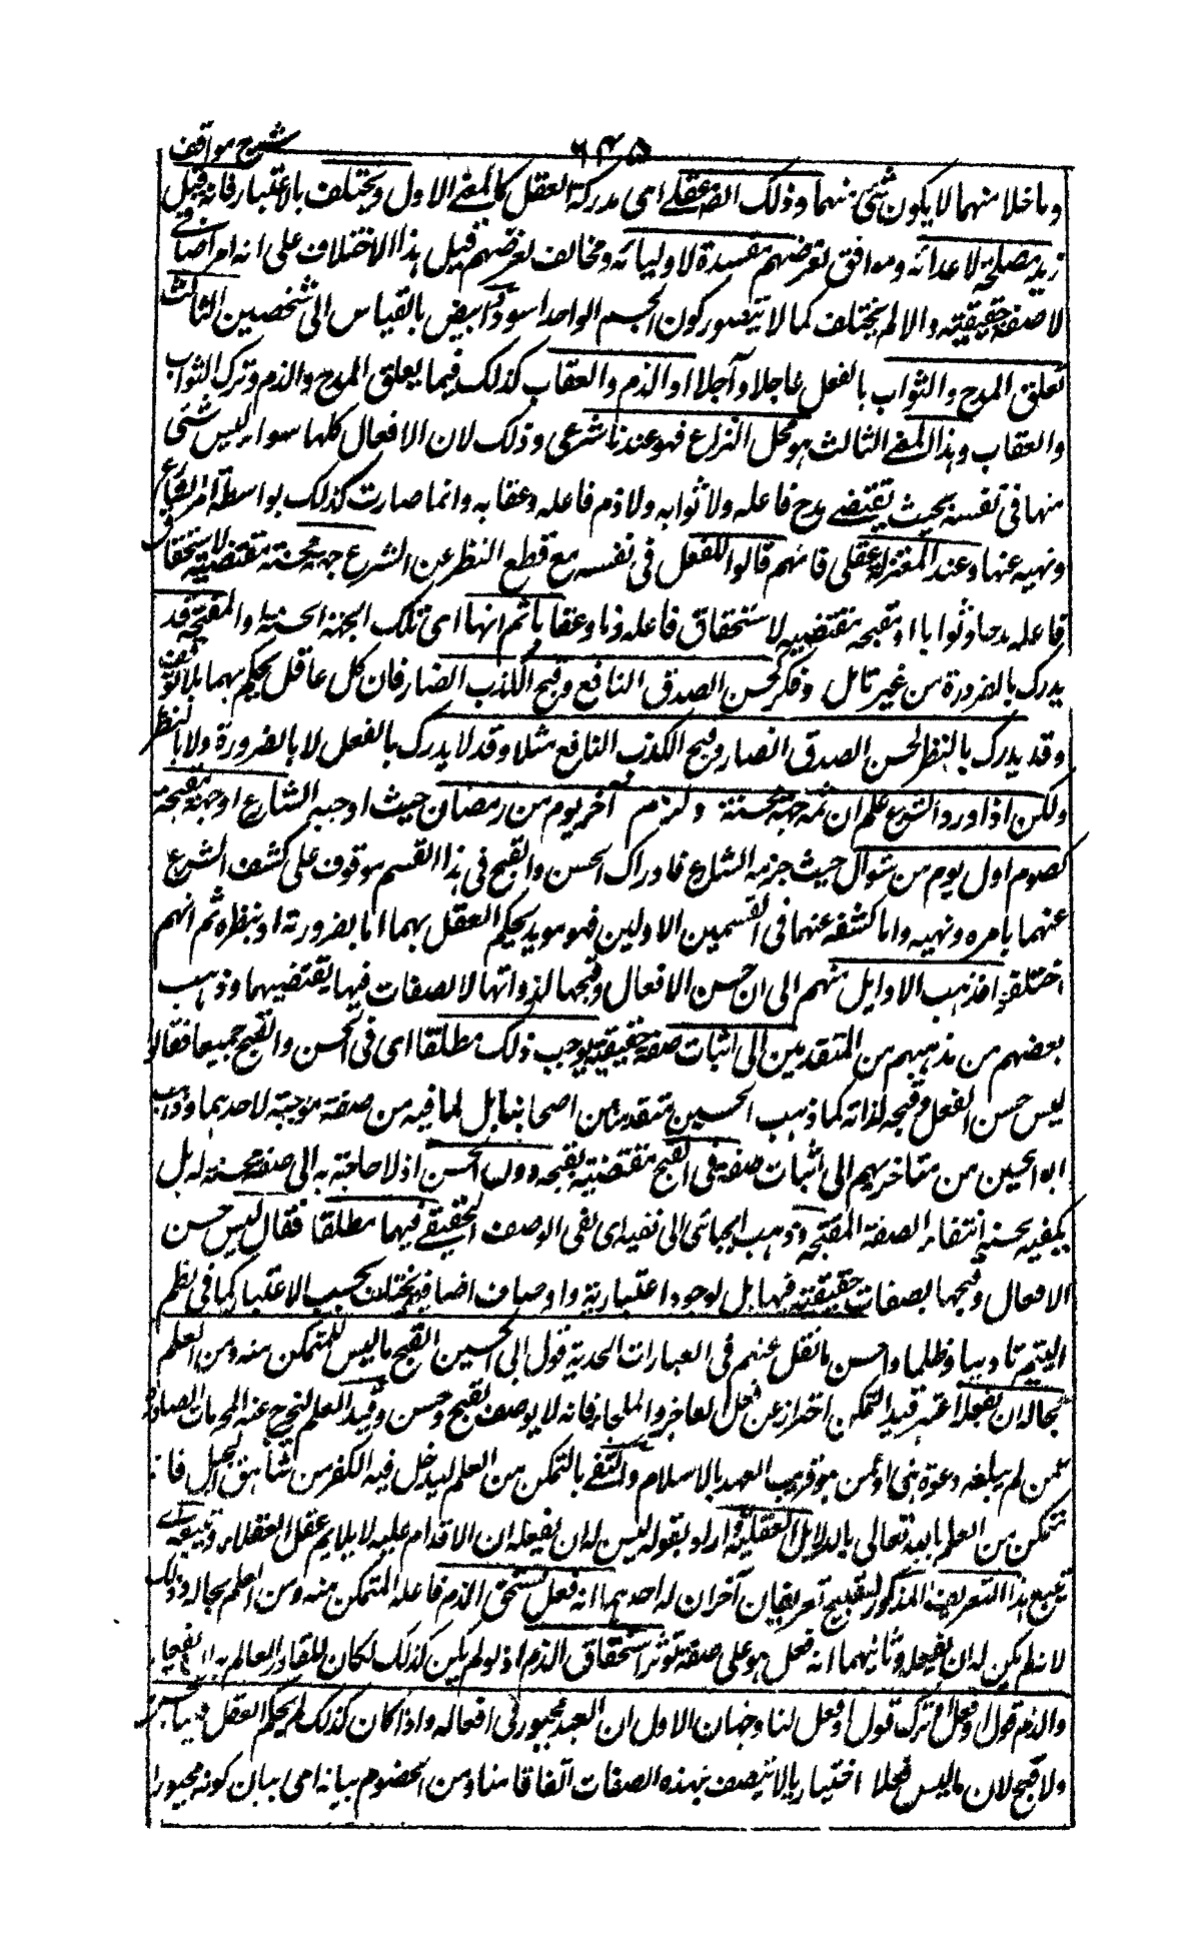 شرح مواقف
٦٤٥
وما خلا منهما لا يكون شئ منهما وذلك ايضا عقلے اى مدركه العقل كالمعنے الاول ويختلف بالاعتبار فان قتل
زيد مصلحة لاعدائه وموافق لغرضهم مفسدة لاوليائه ومخالف لغرضهم فيدل هذا الاختلاف على انه امر اضافے
لا صفة حقيقية والا لم يختلف كما لا يتصور كون الجسم الواحد اسود وابيض بالقياس الى شخصين الثالث
تعلق المدح والثواب بالفعل عاجلا وآجلا او الذم والعقاب كذلك فيما يعلق المدح والذم وترك الثواب
والعقاب وهذا المعنے الثالث هو محل النزاع فهو عندنا شرعى وذلك لان الافعال كلها سواء ليس شئى
منها فى نفسه بحيث يقتضے مدح فاعله ولا ثوابه ولا ذم فاعله وعقابه وانما صارت كذلك بواسطة امر الشارع
ونهيه عنها وعند المعتزلة عقلى فانهم قالوا للفعل فى نفسه مع قطع النظر عن الشرع جهة محسنة مقتضية لاستحقاق
فاعله مدحا وثوابا او مقبحة مقتضيه لاستحقاق فاعله ذما وعقابا ثم انها اى تلك الجهة المحسنة والمقبحة قد
يدرك بالضرورة من غير تامل وفكر كحسن الصدق النافع وقبح الكذب الضار فان كل عاقل يحكم بهما بلا توقف
وقد يدرك بالنظر كحسن الصدق الضار وقبح الكذب النافع مثلا وقد لا يدرك بالفعل لا بالضرورة ولا بالنظر
ولكن اذا ورد الشرع علم ان ثمه جهة محسنة كما فى صوم آخر يوم من رمضان حيث اوجبه الشارع او جهة مقبحة
كصوم اول يوم من شوال حيث حرمه الشارع فادراك الحسن والقبح فى هذا القسم موقوف على كشف الشرع
عنهما بامره ونهيه واما كشفه عنهما فى القسمين الاولين فهو مويد لحكم العقل بهما اما بضرورته او بنظره ثم انهم
اختلفوا فذهب الاوايل منهم الى ان حسن الافعال وقبحها لذواتها لا لصفات فيها يقتضيهما وذهب
بعضهم من بعدهم من المتقدمين الى اثبات صفة حقيقية يوجب ذلك مطلقا اى فى الحسن والقبح جميعا فقالوا
ليس حسن الفعل وقبحه لذاته كما ذهب اليه من تقدمنا من اصحابنا بل لما فيه من صفة موجبة لاحدهما وذهب
ابو الحسين من متاخريهم الى اثبات صفة فى القبيح مقتضية لقبحه دون الحسن اذ لا حاجة به الى صفة محسنة له بل
يكفيه لحسنه انتفاء الصفة المقبحة وذهب الجبائى الى نفيه اى نفى الوصف الحقيقے فيهما مطلقا فقال ليس حسن
الافعال وقبحها بصفات حقيقية فيها بل لوجوه اعتبارية واوصاف اضافية يختلف بحسب الاعتبار كما فى لطم
اليتيم تاديبا وظلما واحسن ما نقل عنهم فى العبارات الحدية قول ابى الحسين القبيح ما ليس للمتمكن منه ومن العلم
بحاله ان يفعله اعتبر قيد التمكن احترازا عن فعل العاجز والملجاء فانه لا يوصف بقبح وحسن وقيد العلم ليخرج عنه المحرمات الصادرة
عمن لم يبلغه دعوة نبى او عمن هو قريب العهد بالاسلام واكتفے بالتمكن من العلم ليدخل فيه الكفر من شاهق الجبل فانه
متمكن من العلم بالله تعالى بالدلايل العقلية واراد بقوله ليس له ان يفعله ان الاقدام عليه لا يلايم عقل العقلاء ويتبعه اے
يتبع هذا التعريف المذكور للقبيح تعريفان آخران له احدهما انه فعل يستحق الذم فاعله المتمكن منه ومن العلم بحاله وذلك
لانه لم يكن له ان يفعله وثانيهما انه فعل هو على صفة توثر فى استحقاق الذم اذ لو لم يكن كذلك لكان للقادر العالم به ان يفعله
والذم قول او فعل او ترك قول او فعل لنا وجهان الاول ان العبد مجبور فى افعاله واذا كان كذلك لم يحكم العقل فيها بحسن
ولا قبح لان ما ليس فعلا اختياريا لا يتصف بهذه الصفات اتفاقا منا ومن الخصوم بيانه اى بيان كونه مجبورا